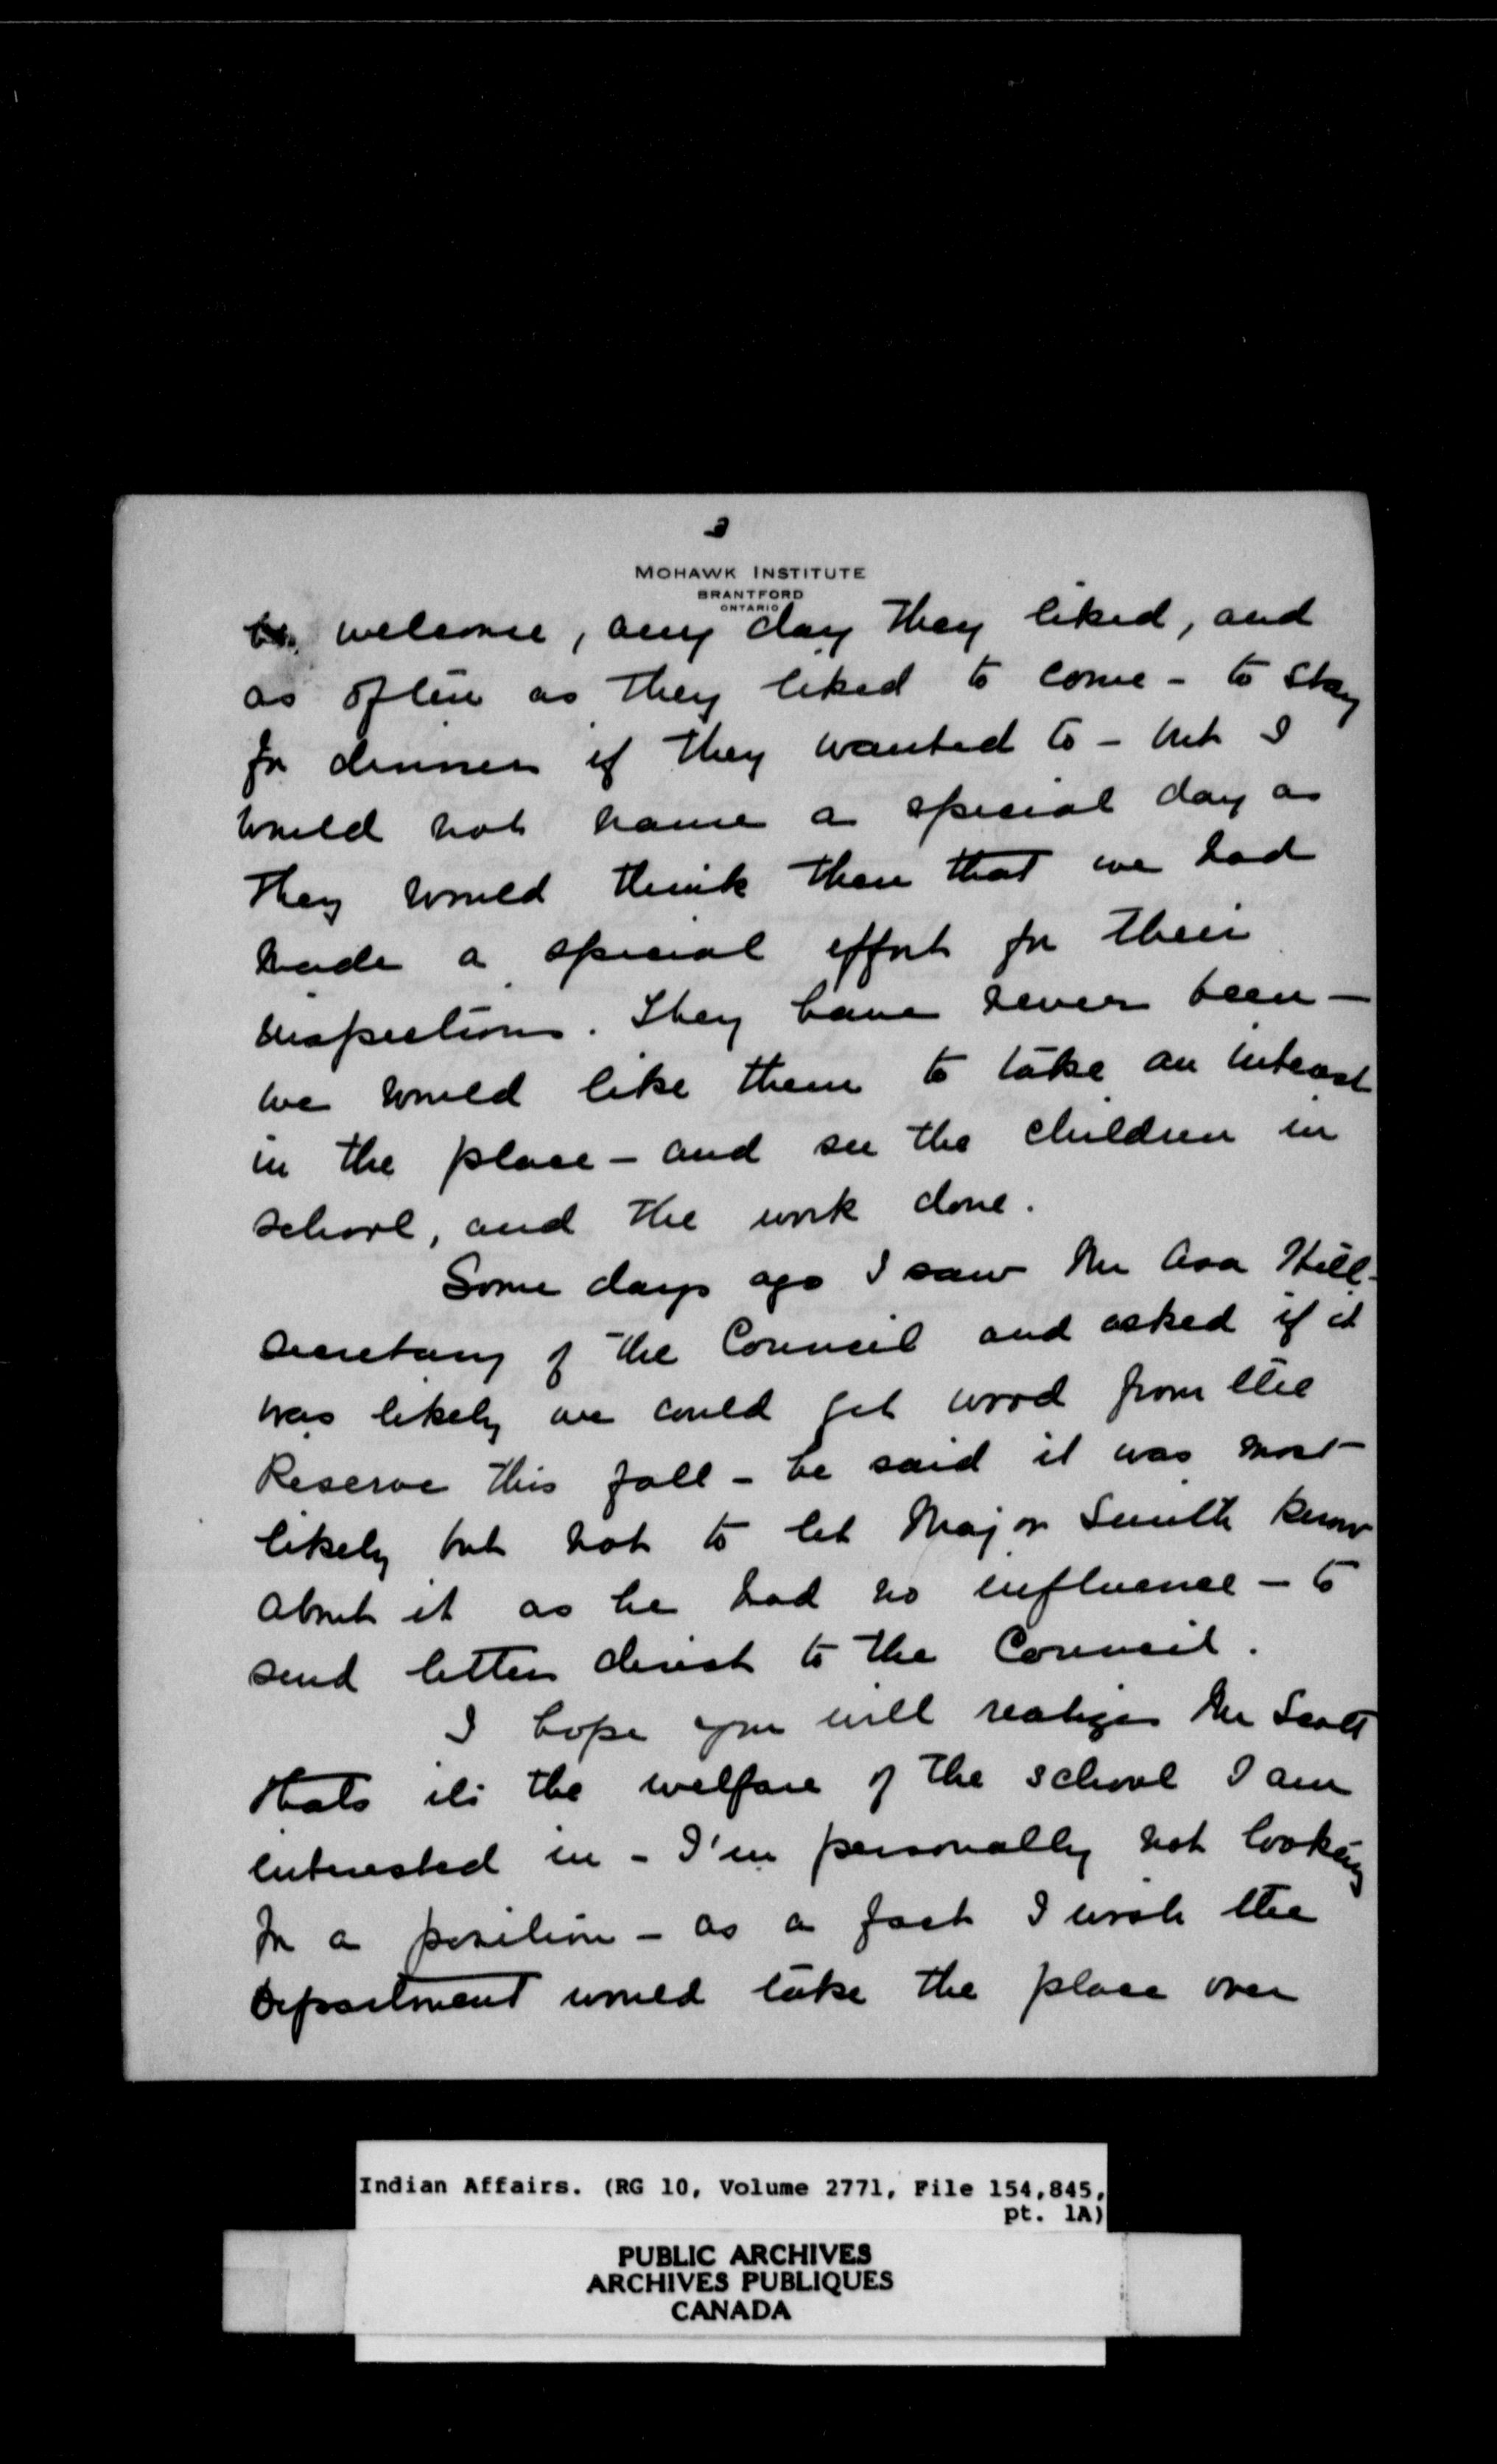 3
MOHAWK INSTITUTE
BRANTFORD
ONTARIO
be welcome, any day they liked, and
as often as they liked to come - to stay
for dinner if they wanted to - but I
would not name a special day as
they would think then that we had
made a special effort for their
inspections. They have never been -
we would like them to take an interest
in the place - and see the children in
school, and the work done.
Some days ago I saw Mr Asa Hill -
Secretary of the Council and asked if it
was likely we could get wood from the
Reserve this fall - he said it was most
likely but not to let Major Smith know
about it as he had no influence - to
send letter direct to the Council.
I hope you will realize Mr Scott
thats its the welfare of the school I am
interested in - I'm personally not looking
for a position - as a fact I wish the
Department would take the place over
Indian Affairs. (RG 10, Volume 2771, File 154,845,
pt. 1A)
PUBLIC ARCHIVES
ARCHIVES PUBLIQUES
CANADA